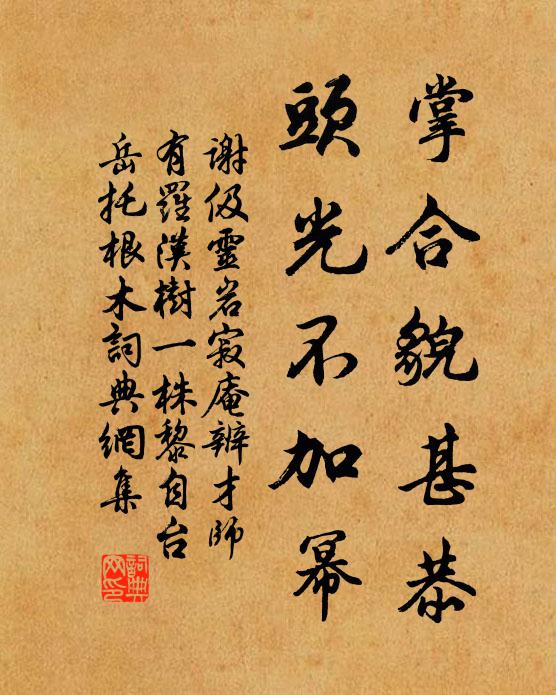 掌合貌甚恭
頭光不加冪
謝伋靈岩寂庵辨才師
有羅漢樹一株黎自台
岳托根木詞典網集
詞典网印